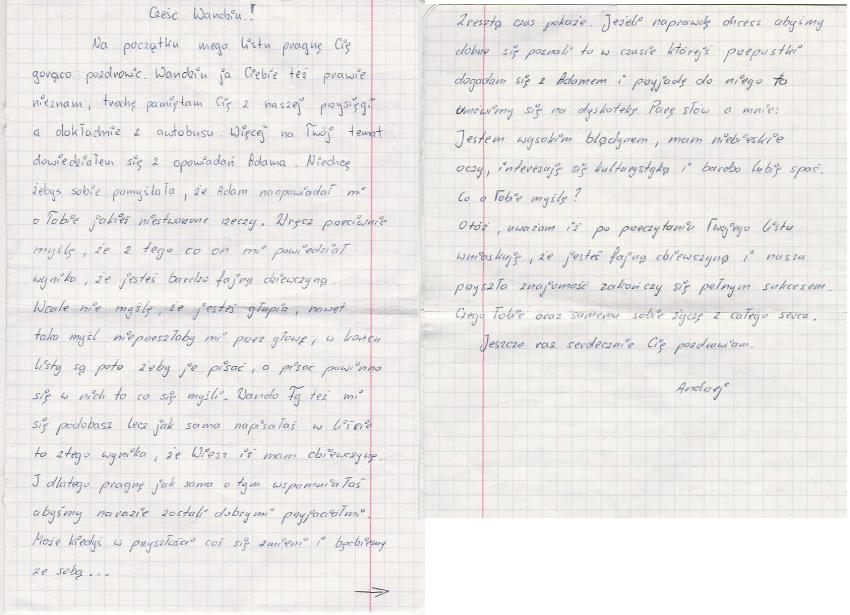 Cześć Wandziu!
Na początku mego listu pragnę Cię
gorąco pozdrowić. Wandziu ja Ciebie też prawie
nieznam, trochę pamiętam Cię z naszej przysięgi
a dokładnie z autobusu. Więcej na Twój temat
dowiedziałem się z opowiadań Adama. Niechcę
żebyś sobie pomyślała, że Adam naopowiadał mi
o Tobie jakieś niestworzone rzeczy. Wręcz przeciwnie
myślę, że z tego co on mi powiedział
wynika, że jesteś bardzo fajną dziewczyną.
Wcale nie myślę, że jesteś głupia, nawet
taka myśl nieprzeszłaby mi przez głowę, w końcu
listy są poto żeby je pisać, a pisać powinno
się w nich to co się myśli. Wando Ty też mi
się podobasz lecz jak sama napisałaś w liście
to ztego wynika, że Wiesz iż mam dziewczynę.
I dlatego pragnę jak sama o tym wspomniałaś
abyśmy narazie zostali dobrymi przyjaciółmi.
Może kiedyś w przyszłości coś się zmieni i będziemy
ze sobą...
Zresztą czas pokaże. Jeżeli naprawdę chcesz abyśmy
dobrze się poznali to w czasie którejś przepustki
dogadam się z Adamem i przyjadę do niego to
umówimy się na dyskotekę. Parę słów o mnie:
Jestem wysokim blądynem, mam niebieskie
oczy, interesuję się kulturystyką i bardzo lubię spać.
Co o Tobie myślę?
Otóż, uważam iż po przeczytaniu Twojego listu
wnioskuję, że jesteś fajną dziewczyną i nasza
przyszła znajomość zakończy się pełnym sukcesem.
Czego Tobie oraz samemu sobie życzę z całego serca.
Jeszcze raz serdecznie Cię pozdrawiam.
Andrzej